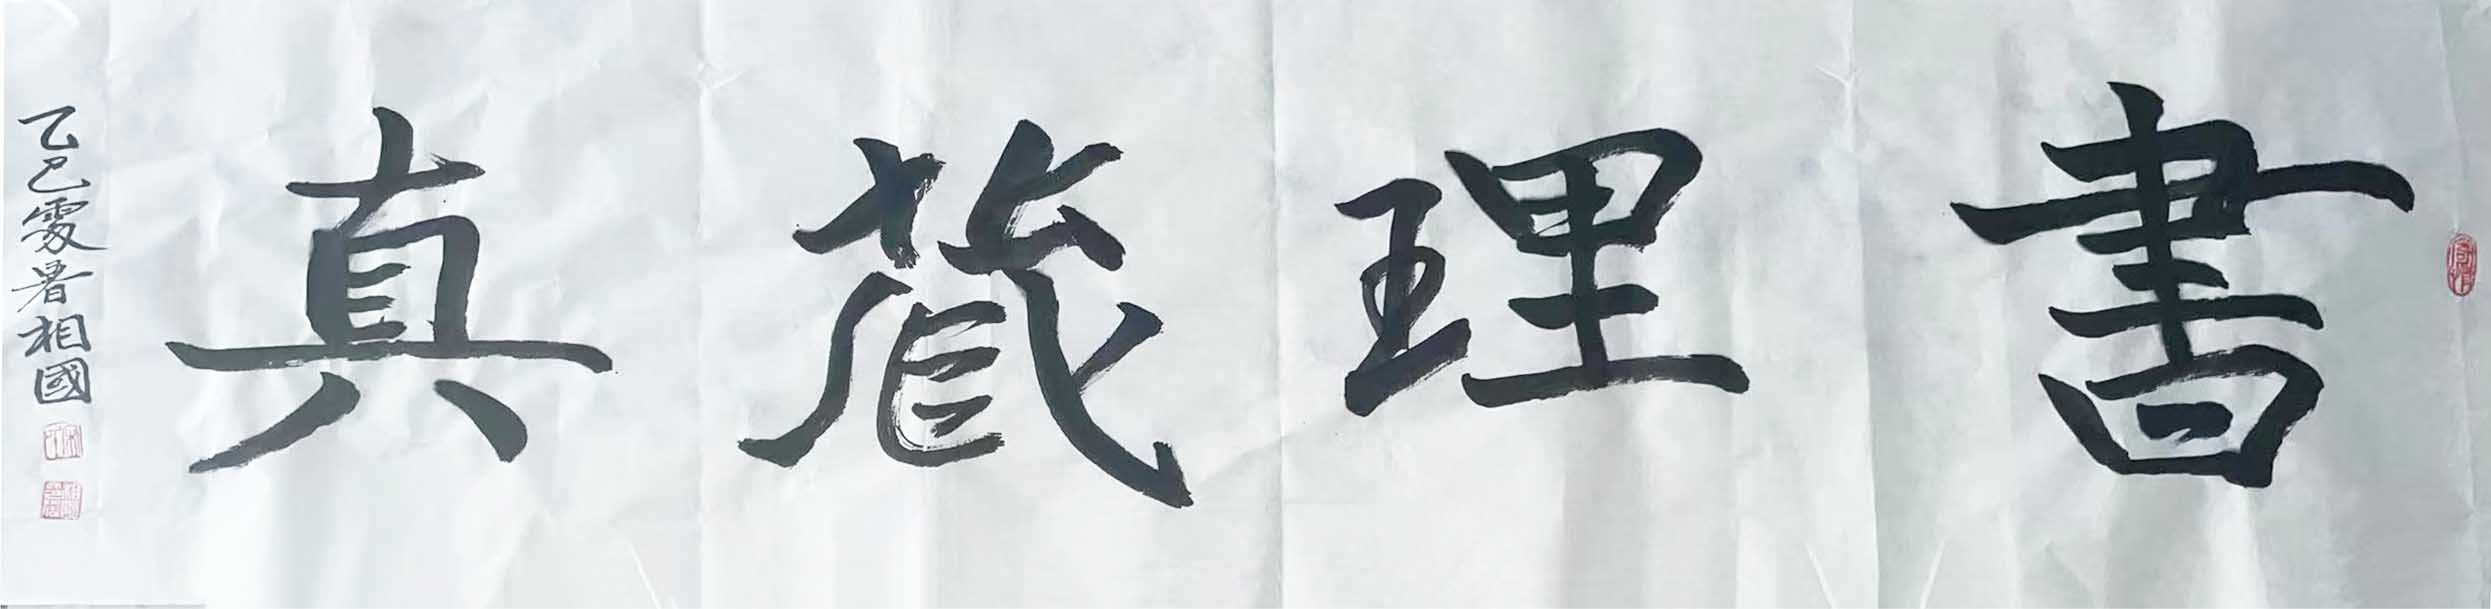 書理藏真
乙巳處暑相國